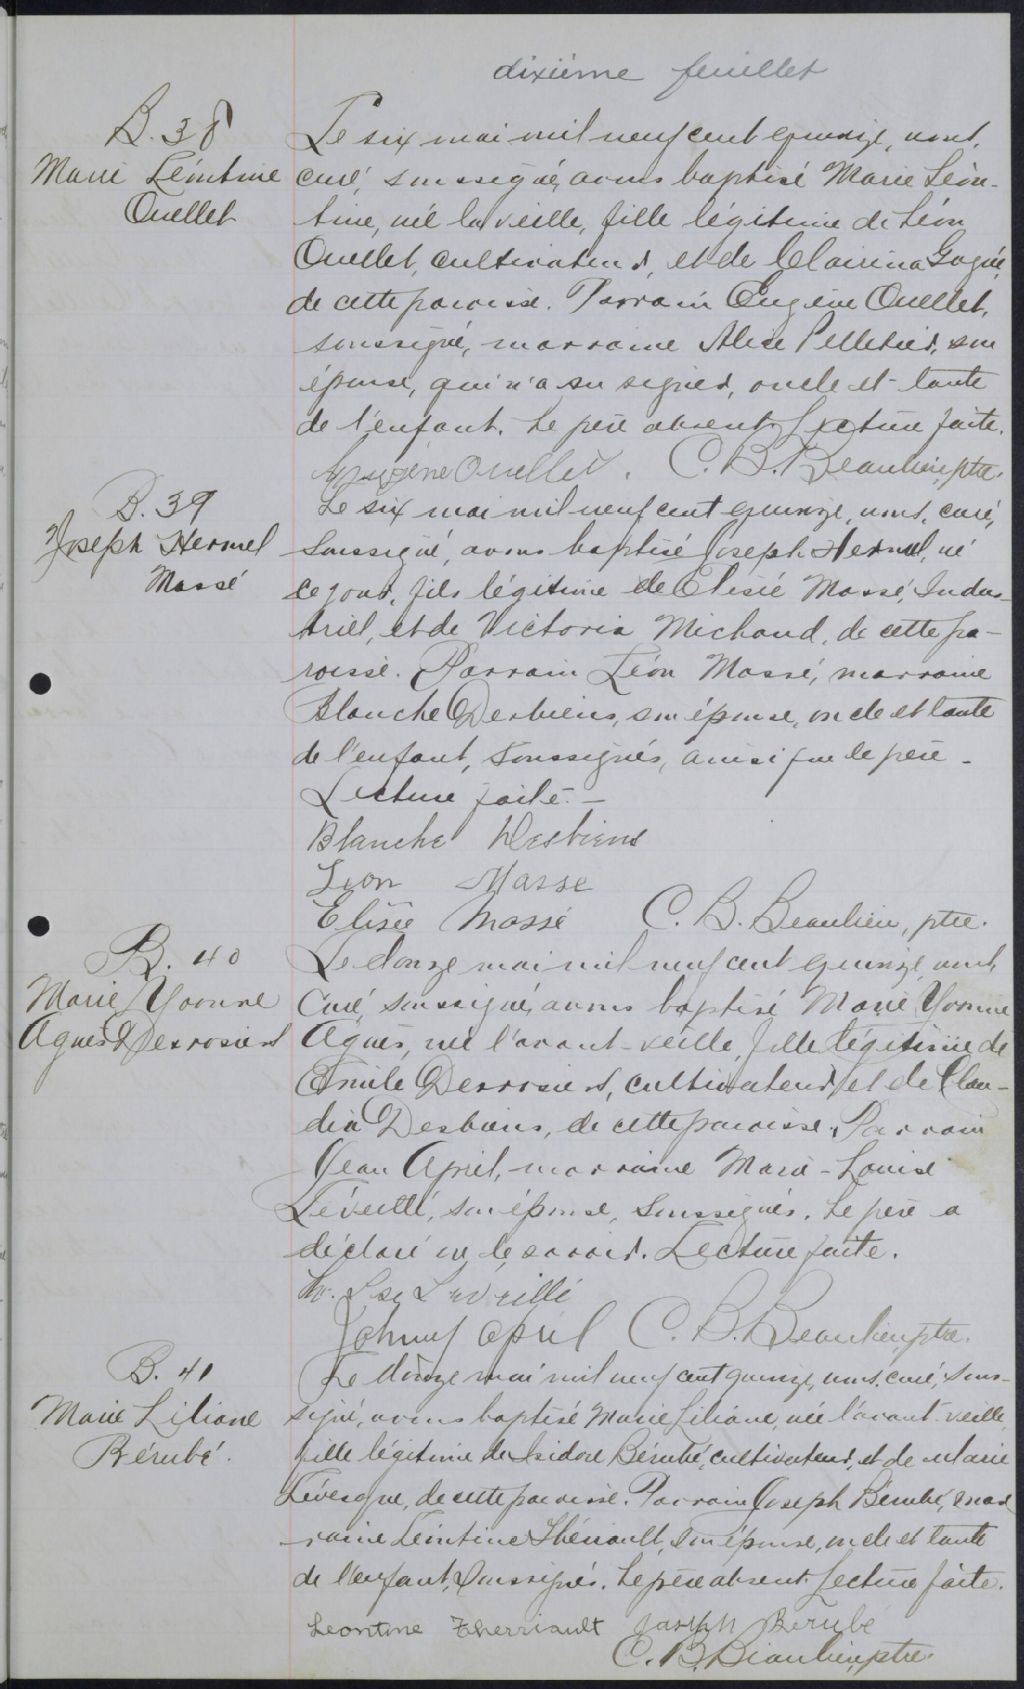 dixième feuillet
B. 38
Marie Léontine
Ouellet
Le six mai mil neuf cent quinze, nous,
curé, soussigné, avons baptisé Marie Léon-
tine, née la veille, fille légitime de Léon
Ouellet, cultivateur, et de Clairina Gagné,
de cette paroisse. Parrain Eugène Ouellet,
soussigné, marraine Alice Pelletier, son
épouse, qui n'a su signer, oncle et tante
de l'enfant. Le père absent. Lecture faite.
Eugène Ouellet. C. B. Beaulieu, ptre.
B. 39
Joseph Hermel
Massé
Le six mai mil neuf cent quinze, nous, curé,
soussigné, avons baptisé Joseph Hermel, né
ce jour, fils légitime de Elisée Massé, Indus-
triel, et de Victoria Michaud, de cette pa-
roisse. Parrain Léon Massé, marraine
Blanche Desbiens, son épouse, oncle et tante
de l'enfant, soussignés, ainsi que le père -
Lecture faite. -
Blanche Desbiens
Léon Masse
Elisée Massé C. B. Beaulieu, ptre.
B. 40
Marie Yvonne
Agnès Desrosiers
Le douze mai mil neuf cent quinze, nous,
Curé, soussigné, avons baptisé Marie Yvonne
Agnès, née l'avant-veille, fille légitime de
Emile Desrosiers, cultivateur, et de Clau-
dia Desbiens, de cette paroisse. Parrain
Jean April, marraine Marie-Louise
Léveillé, son épouse, soussignés. Le père a
déclaré ne le savoir. Lecture faite.
Leveillé
Johnny April C. B. Beaulieu, ptre.
B. 41
Marie Liliane
Bérubé.
Le douze mai mil neuf cent quinze, nous, curé, sous-
signé, avons baptisé Marie Liliane, née l'avant-veille,
fille légitime de Isidore Bérubé, cultivateur, et de Marie
Lévesque, de cette paroisse. Parrain Joseph Bérubé, mar-
raine Léontine Thériault, son épouse, oncle et tante
de l'enfant, soussignés. Le père absent. Lecture faite.
Leontine Therriault Joseph Bérubé
C. B. Beaulieu, ptre.